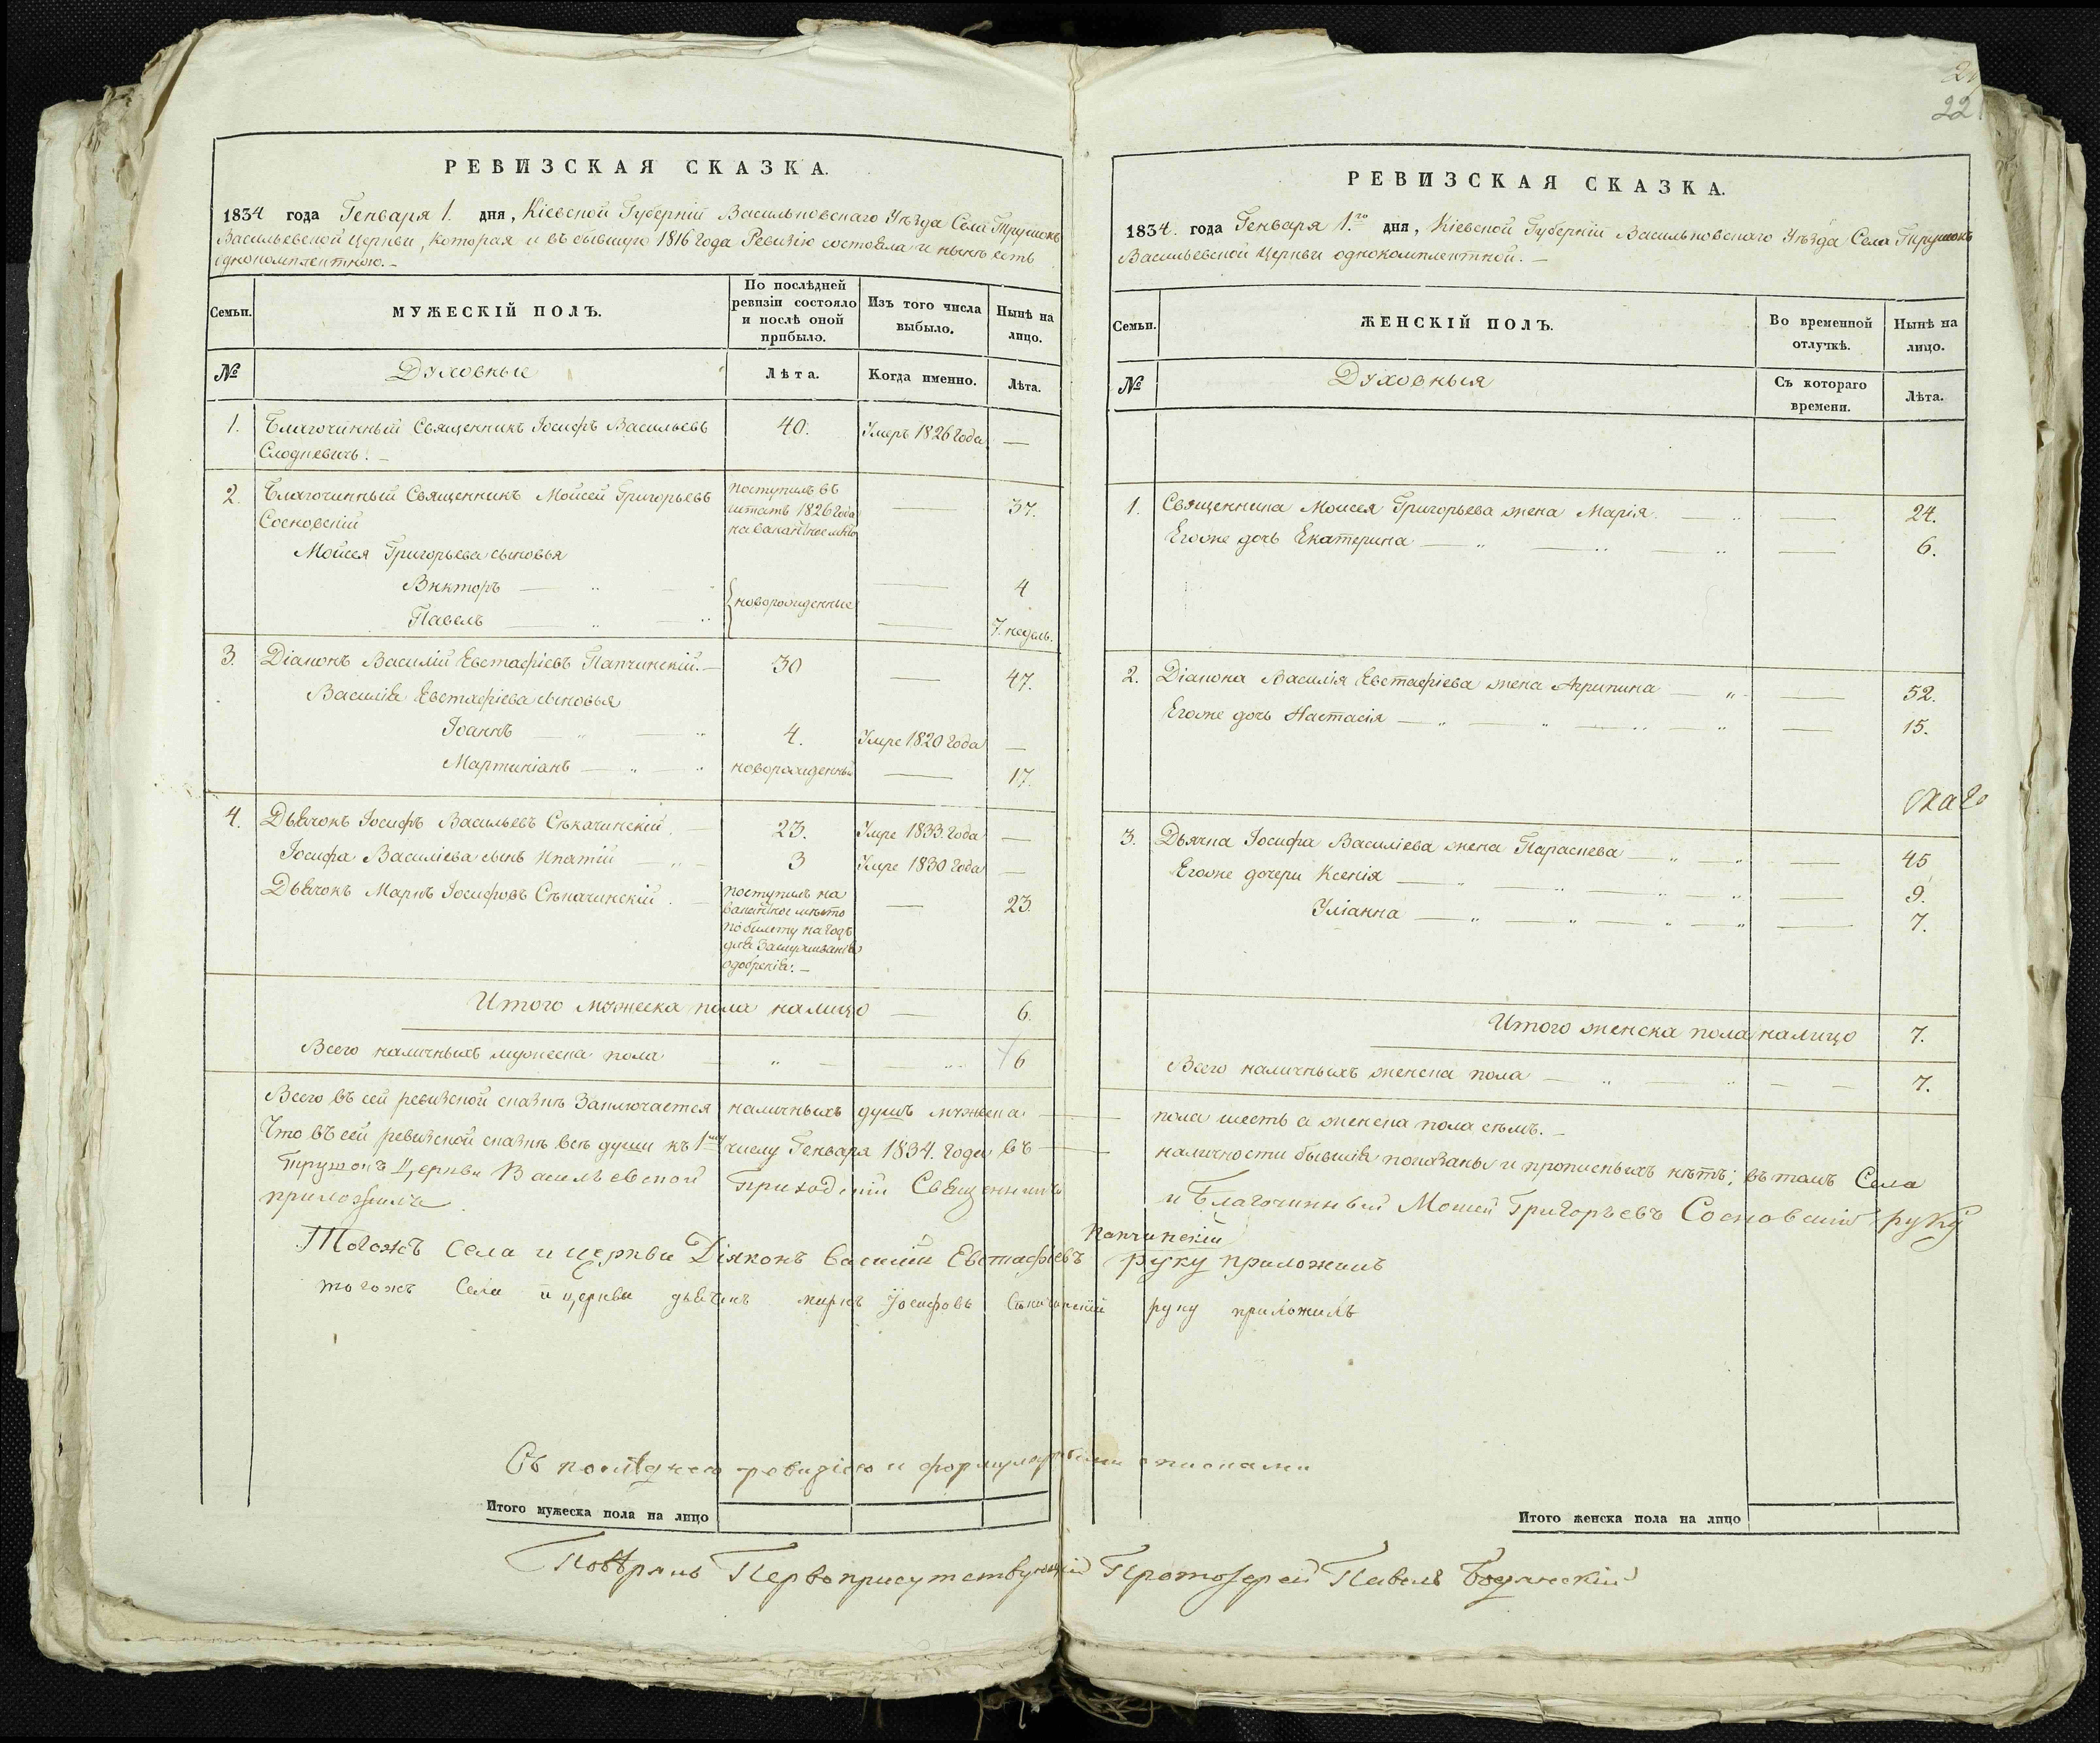 РЕВИЗСКАЯ СКАЗКА.
1834 года Генваря 1. дня, Кіевской Губерніи Васильковскаго Уѣзда Села Трушокъ
Васильевской Церкви, которая и въ бывшую 1816 года Ревизію состояла и нынѣ есть
однокомплектною. —
Семьи.
МУЖЕСКІЙ ПОЛЪ.
По послѣдней ревизіи состояло и послѣ оной прибыло.
Изъ того числа выбыло.
Нынѣ на лицо.
№
Духовные
Лѣта.
Когда именно.
Лѣта.
1. Благочинный Священникъ Іосифъ Васильевъ 40. Умеръ 1826 года —
2. Благочинный Священникъ Моисей Григорьевъ поступилъ въ
Сосновскій штатъ 1826 года — 37.
на вакантное мѣсто
Моисея Григорьева сыновья
Викторъ — новорожденные — 4
Павелъ — — 7. недель.
3. Діаконъ Василій Евстафіевъ Папчинскій. — 30 — 47.
Василія Евстафіева сыновья
Іоаннъ — 4. Умре 1820 года —
Мартиніанъ — новорожденный — 17.
4. Дьячокъ Іосифъ Васильевъ Сѣкачинскій. 23. Умре 1833. года —
Іосифа Василіева сынъ Ипатій — 3 Умре 1830 года —
Дьячокъ Маркъ Іосифовъ Сѣкачинскій. поступилъ на — 23.
вакантное мѣсто
по билету на годъ
для
одобрѣнія. —
Итого мужеска пола налицо — 6.
Всего наличныхъ мужеска пола — 6
Всего въ сей ревизской сказкѣ заключается наличныхъ душъ мужеска
Что въ сей ревизской сказкѣ всѣ души къ 1му числу Генваря 1834. года въ
Трушокъ Церкви Васильевской Приходскій Священникъ
приложилъ
Тогожъ Села и церкви Діяконъ Василій Евстафіевъ
тогожъ Села и церкви дьячокъ маркъ Іосифовъ Сѣкачинскій
Съ послѣднею ревизіею и формулярными списками
Итого мужеска пола на лицо
Повѣрялъ Первоприсутствующій Протоіерей Павелъ
21
22
РЕВИЗСКАЯ СКАЗКА.
1834. года Генваря 1.го дня, Кіевской Губерніи Васильковскаго Уѣзда Села Трушокъ
Васильевской Церкви однокомплектной. —
Семьи.
ЖЕНСКІЙ ПОЛЪ.
Во временной отлучкѣ.
Нынѣ на лицо.
№
Духовныя
Съ котораго времени.
Лѣта.
1. Священника Моисея Григорьева жена Марія — 24.
Егоже дочь Екатерина — 6.
2. Діакона Василія Евстафіева жена Агрипина — 52.
Егоже дочь Настасія — 15.
3. Дьячка Іосифа Василіева жена Параскева — 45
Егоже дочери Ксенія — 9.
Уліанна — 7.
Итого женска пола налицо 7.
Всего наличныхъ женска пола — 7.
пола шесть а женска пола сѣмъ. —
наличности бывшія показаны и прописныхъ нѣтъ; въ томъ Села
и Благочинный Моисей Григорьевъ Сосновскій руку
Папчинскій
руку приложилъ
руку приложилъ
Итого женска пола на лицо